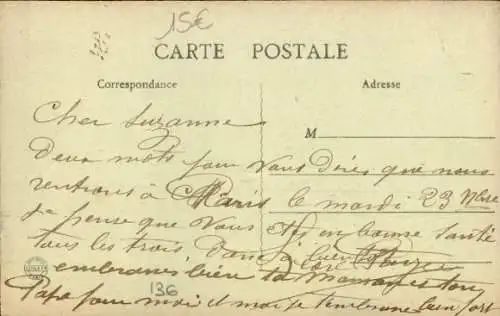 15€
CARTE POSTALE
Correspondance
Adresse
M
Cher Suzanne
Deux mots pour vous dires que nous
rentrons à Paris le mardi 23 Nbre
Je pense que vous êtes en bonne santé
tous les trois. Donc à bientôt
embrasses bien ta Maman et ton
Papa pour moi et moi je t'embrasse bien fort
136